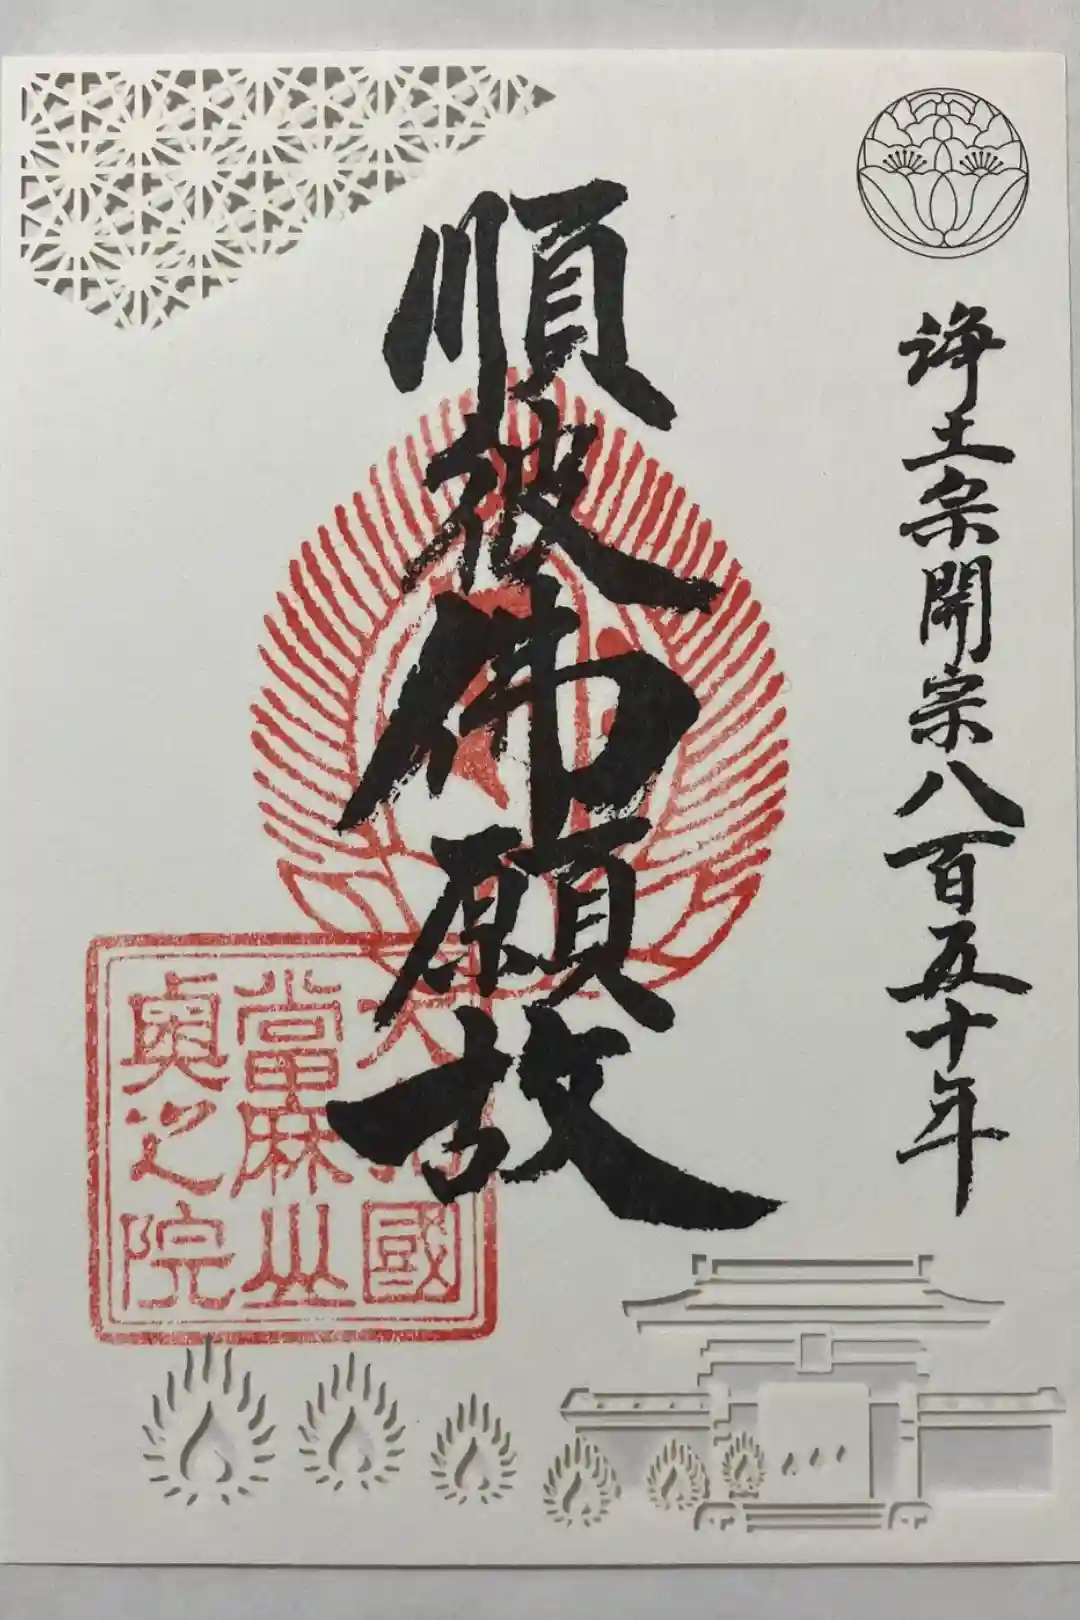 浄土宗開宗八百五十年
順彼佛願故
大和國
當麻山
奥之院